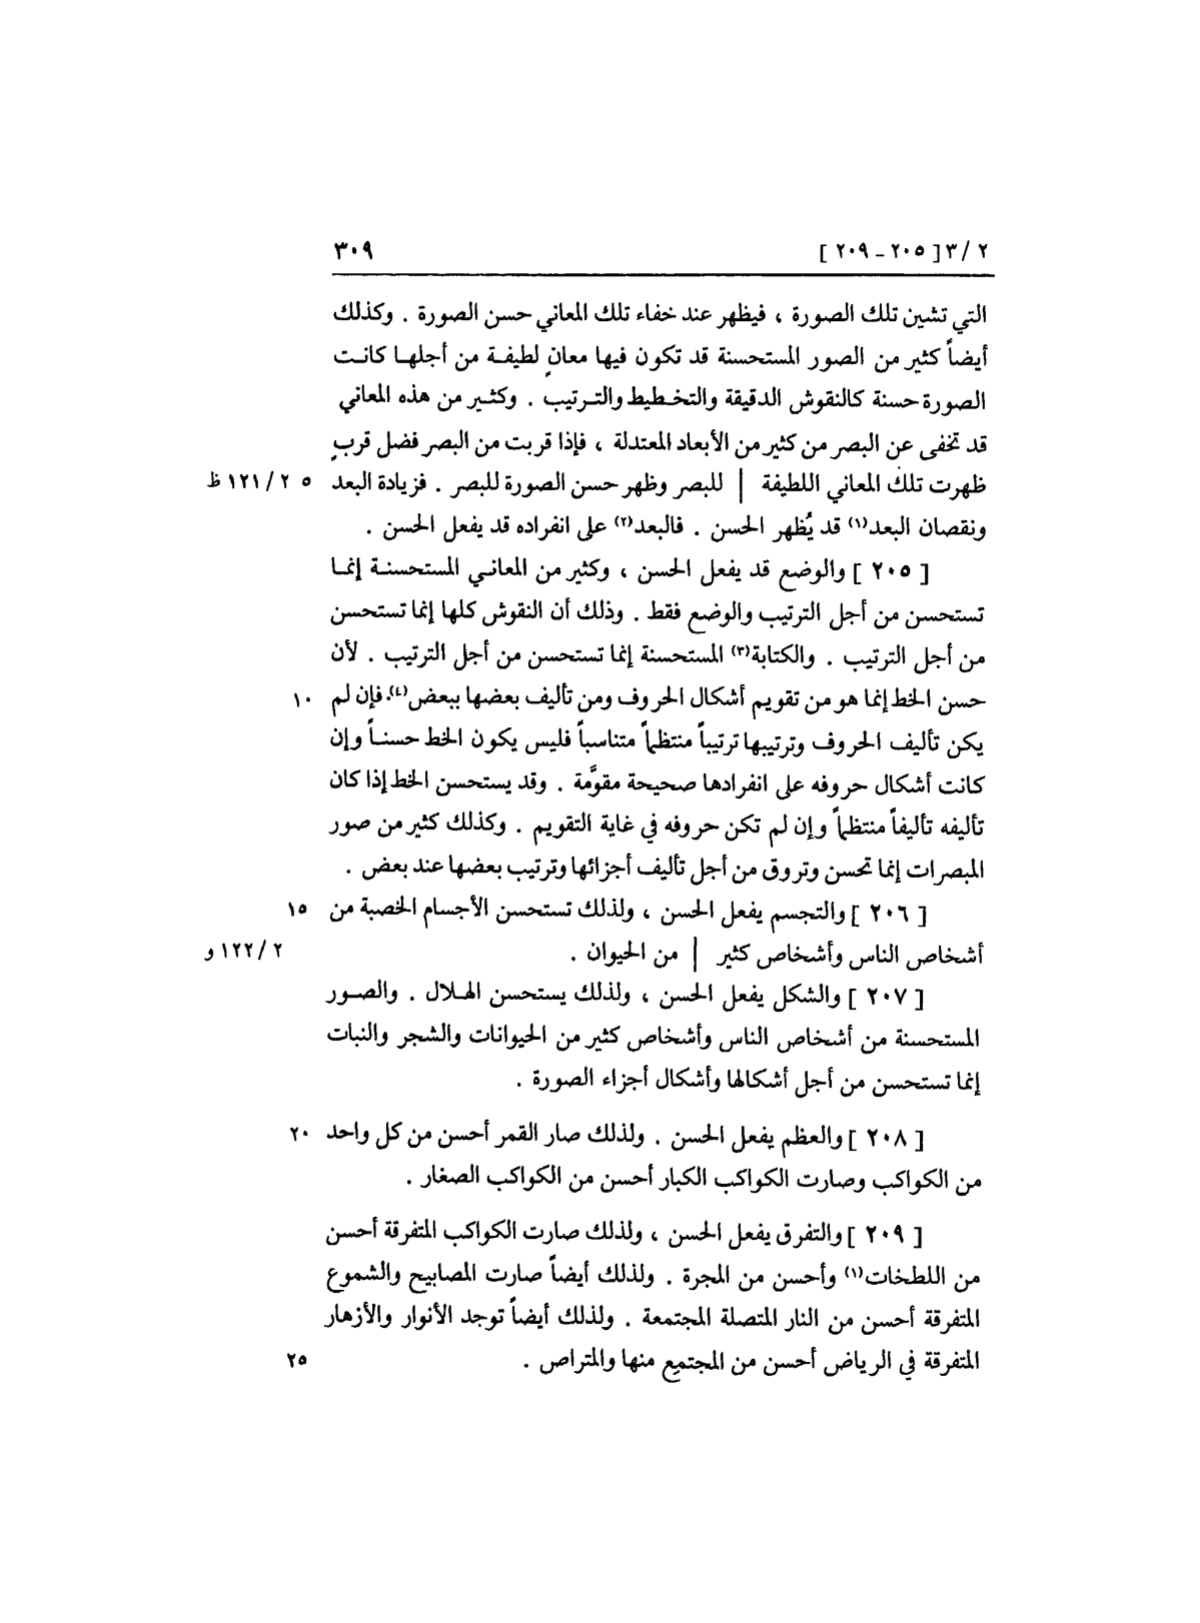 ٢ / ٣ [ ٢٠٥ - ٢٠٩ ] ٣٠٩
التي تشين تلك الصورة ، فيظهر عند خفاء تلك المعاني حسن الصورة . وكذلك
أيضاً كثير من الصور المستحسنة قد تكون فيها معانٍ لطيفـة من أجلهـا كانـت
الصورة حسنة كالنقوش الدقيقة والتخـطيط والتـرتيب . وكثـير من هذه المعاني
قد تخفى عن البصر من كثير من الأبعاد المعتدلة ، فإذا قربت من البصر فضل قربٍ
ظهرت تلك المعاني اللطيفة | للبصر وظهر حسن الصورة للبصر . فزيادة البعد ٥ ٢ / ١٢١ ظ
ونقصان البعد(١) قد يُظهر الحسن . فالبعد(٢) على انفراده قد يفعل الحسن .
[ ٢٠٥ ] والوضع قد يفعل الحسن ، وكثير من المعانـي المستحسنـة إنمـا
تستحسن من أجل الترتيب والوضع فقط . وذلك أن النقوش كلها إنما تستحسن
من أجل الترتيب . والكتابة(٣) المستحسنة إنما تستحسن من أجل الترتيب . لأن
حسن الخط إنما هو من تقويم أشكال الحروف ومن تأليف بعضها ببعض(٤). فإن لم ١٠
يكن تأليف الحروف وترتيبها ترتيباً منتظماً متناسباً فليس يكون الخط حسنـاً وإن
كانت أشكال حروفه على انفرادها صحيحة مقوَّمة . وقد يستحسن الخط إذا كان
تأليفه تأليفاً منتظماً وإن لم تكن حروفه في غاية التقويم . وكذلك كثير من صور
المبصرات إنما تحسن وتروق من أجل تأليف أجزائها وترتيب بعضها عند بعض .
[ ٢٠٦ ] والتجسم يفعل الحسن ، ولذلك تستحسن الأجسام الخصبة من ١٥
أشخاص الناس وأشخاص كثير | من الحيوان . ٢ / ١٢٢ و
[ ٢٠٧ ] والشكل يفعل الحسن ، ولذلك يستحسن الهـلال . والصـور
المستحسنة من أشخاص الناس وأشخاص كثير من الحيوانات والشجر والنبات
إنما تستحسن من أجل أشكالها وأشكال أجزاء الصورة .
[ ٢٠٨ ] والعظم يفعل الحسن . ولذلك صار القمر أحسن من كل واحد ٢٠
من الكواكب وصارت الكواكب الكبار أحسن من الكواكب الصغار .
[ ٢٠٩ ] والتفرق يفعل الحسن ، ولذلك صارت الكواكب المتفرقة أحسن
من اللطخات(١) وأحسن من المجرة . ولذلك أيضاً صارت المصابيح والشموع
المتفرقة أحسن من النار المتصلة المجتمعة . ولذلك أيضاً توجد الأنوار والأزهار
المتفرقة في الرياض أحسن من المجتمِع منها والمتراص . ٢٥